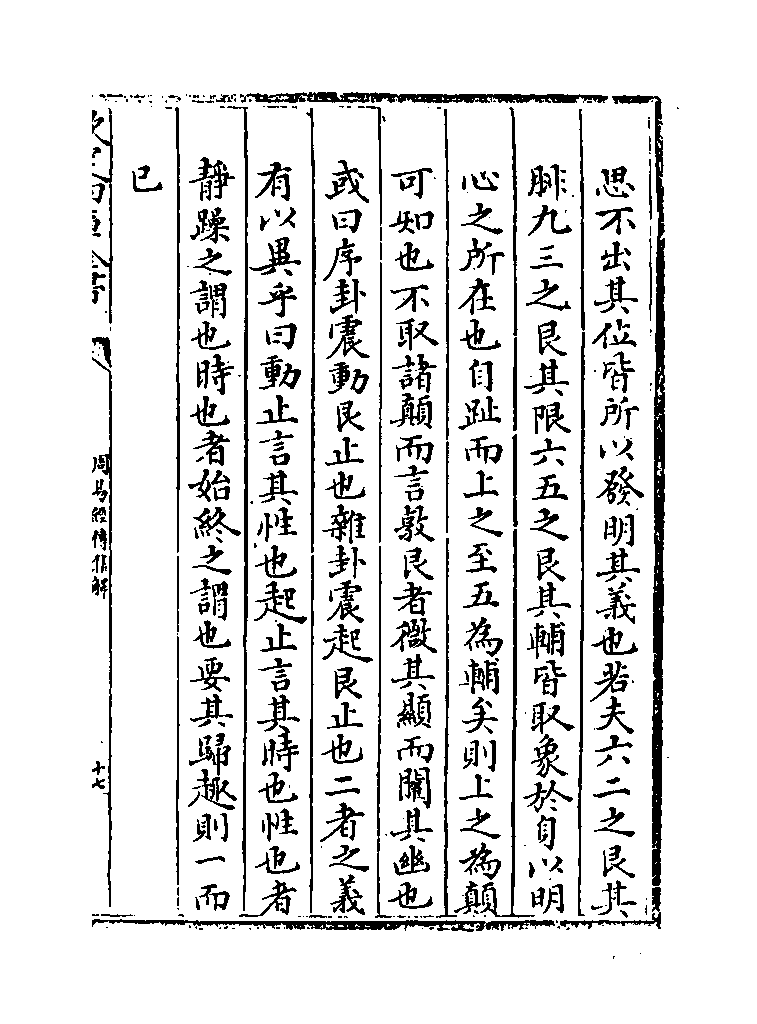 思不出其位皆所以發明其義也若夫六二之艮其
腓九三之艮其限六五之艮其輔皆取象於身以明
心之所在也自趾而上之至五為輔矣則上之為顛
可知也不取諸顛而言敦艮者微其顯而闡其幽也
或曰序卦震動艮止也雜卦震起艮止也二者之義
有以異乎曰動止言其性也起止言其時也性也者
靜躁之謂也時也者始終之謂也要其歸趣則一而
已
周易經傳集解
十七